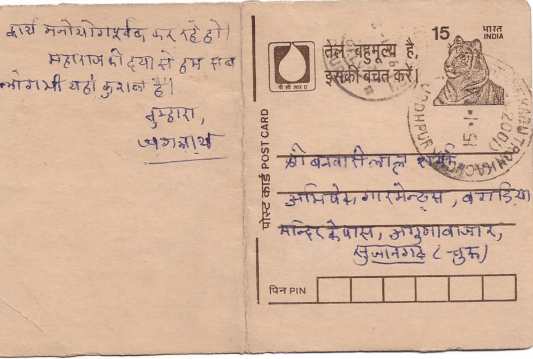 कार्य मनोयोगपूर्वक कर रहे हो।
महाराज की दया से हम सब
लोग भी यहां कुशल है।
तुम्हारा,
जगन्नाथ
तेल बहुमूल्य है,
इसकी बचत करें।
पी सी आर ए
15
भारत
INDIA
पोस्ट कार्ड POST CARD
श्री बनवारी लाल शर्मा
अभिषेक गारमेन्ट्स, बगड़िया
मन्दिर के पास, अगुणा बाजार,
सुजानगढ़ (चुरू)
पिन PIN